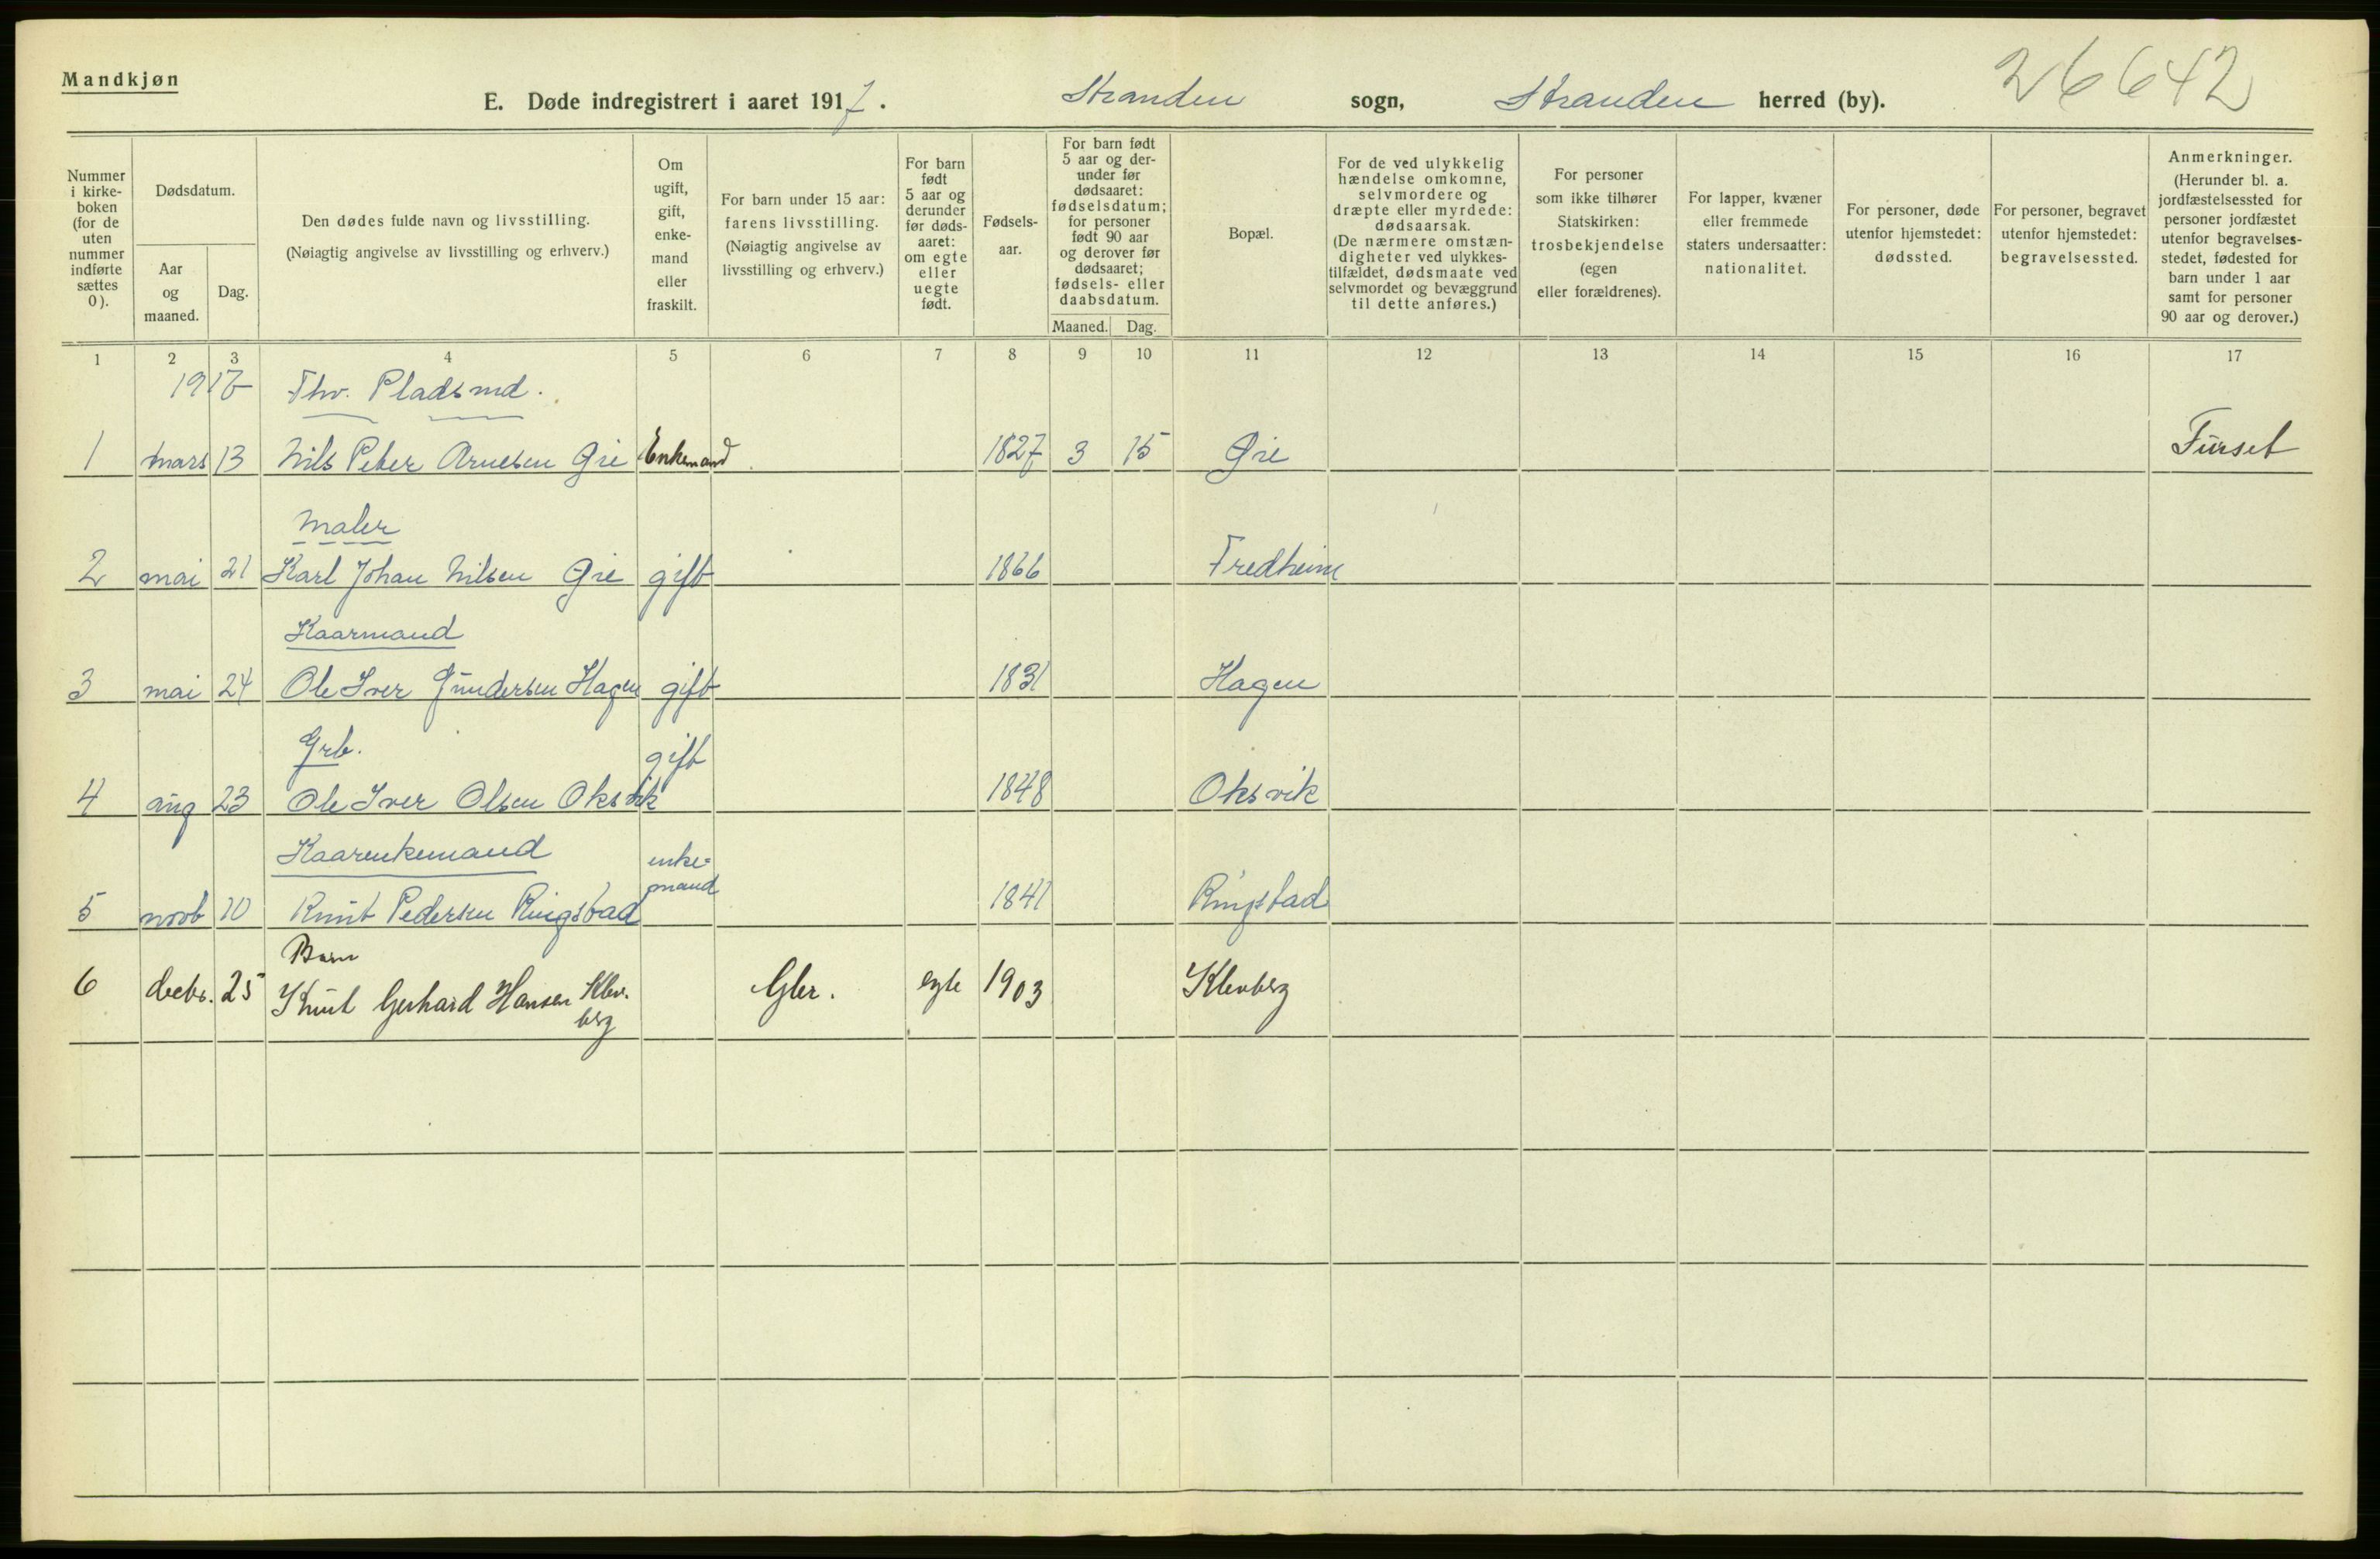 Mandkjøn
E. Døde indregistrert i aaret 1917. Stranden sogn, Stranden herred (by). 26642
Nummer i kirke-boken (for de uten nummer indførte sættes 0).
Dødsdatum.
Aar og maaned.
Dag.
Den dødes fulde navn og livsstilling.
(Nøiagtig angivelse av livsstilling og erhverv.)
Om ugift, gift, enke-mand eller fraskilt.
For barn under 15 aar: farens livsstilling. (Nøiagtig angivelse av livsstilling og erhverv.)
For barn født 5 aar og derunder før døds-aaret: om egte eller uegte født.
Fødsels-aar.
For barn født 5 aar og der-under før dødsaaret: fødselsdatum; for personer født 90 aar og derover før dødsaaret; fødsels- eller daabsdatum.
Maaned. Dag.
Bopæl.
For de ved ulykkelig hændelse omkomne, selvmordere og dræpte eller myrdede: dødsaarsak. (De nærmere omstæn-digheter ved ulykkes-tilfældet, dødsmaate ved selvmordet og bevæggrund til dette anføres.)
For personer som ikke tilhører Statskirken: trosbekjendelse (egen eller forældrenes).
For lapper, kvæner eller fremmede staters undersaatter: nationalitet.
For personer, døde utenfor hjemstedet: dødssted.
For personer, begravet utenfor hjemstedet: begravelsessted.
Anmerkninger. (Herunder bl. a. jordfæstelsessted for personer jordfæstet utenfor begravelses-stedet, fødested for barn under 1 aar samt for personer 90 aar og derover.)
1 2 3 4 5 6 7 8 9 10 11 12 13 14 15 16 17
1917 Fhv. Pladsmd.
1 mars 13 Nils Peter Arnesen Øie Enkemand 1827 3 15 Øie Furset
Maler
2 mai 21 Karl Johan Nilsen Øie gift 1866 Fredheim
Kaarmand
3 mai 24 Ole Iver Gundersen Hagen gift 1831 Hagen
Grb. gift
4 aug 23 Ole Iver Olsen Oksvik 1848 Oksvik
Kaarenkemand enke-
mand
5 novb 10 Knut Pedersen Ringstad 1841 Ringstad
Barn
6 decbr. 25 Knut Gerhard Hansen Klev-
berg Gbr. egte 1903 Klevberg